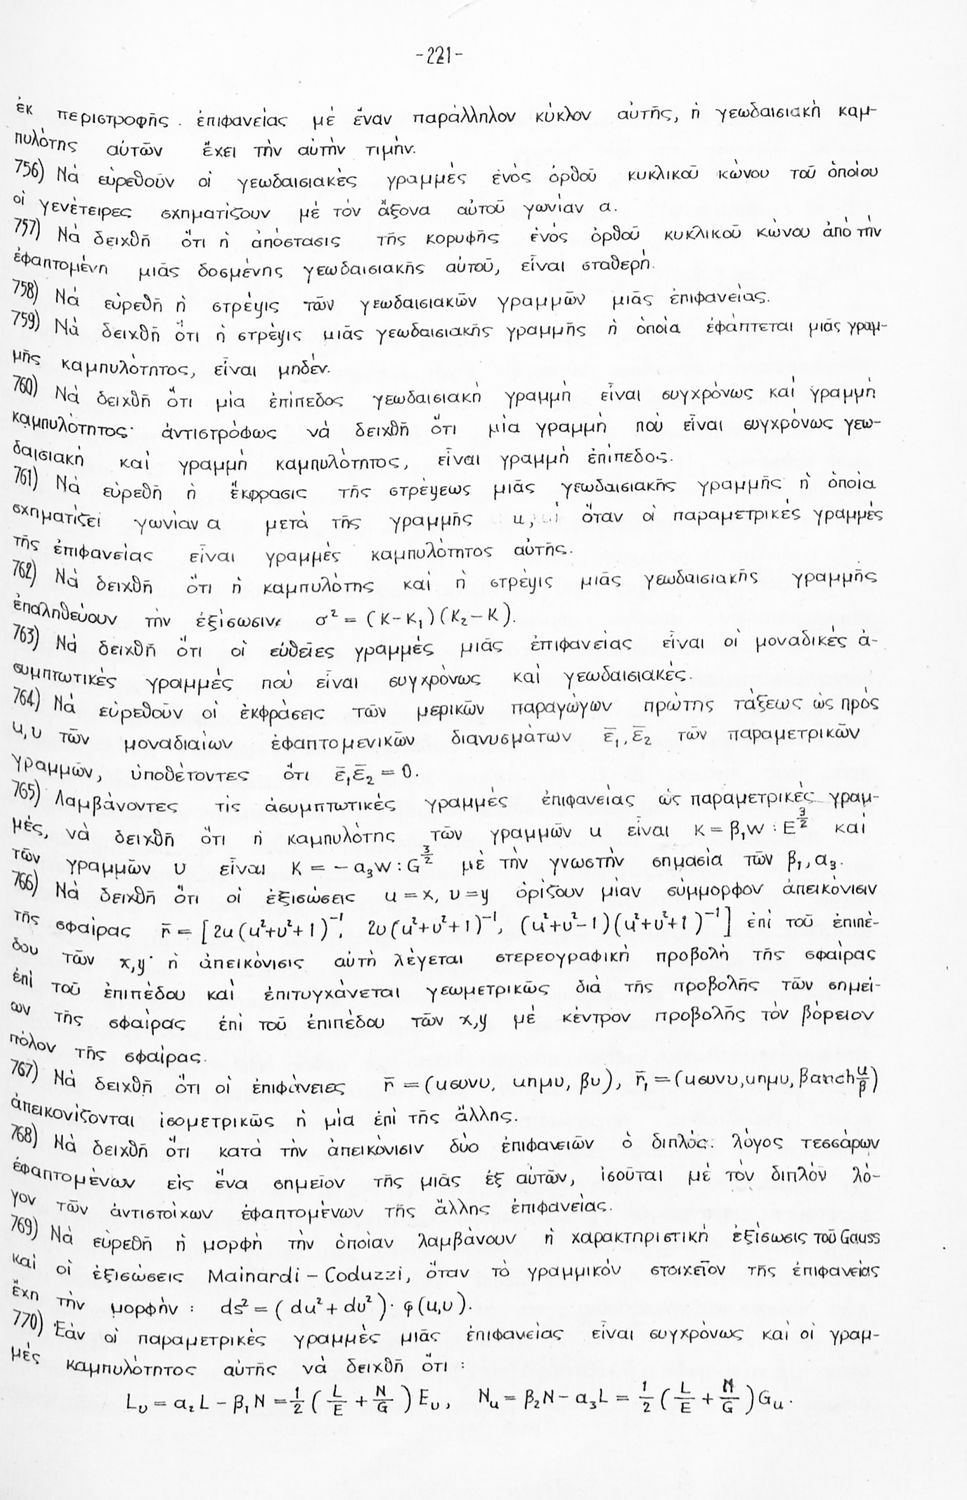 -221-
ἐκ περιστροφῆς ἐπιφανείας μέ ἕναν παράλληλον κύκλον αὐτῆς, ἡ γεωδαισιακή καμ-
πυλότης αὐτῶν ἔχει τήν αὐτήν τιμήν.
756) Νά εὑρεθοῦν οἱ γεωδαισιακές γραμμές ἑνός ὀρθοῦ κυκλικοῦ κώνου τοῦ ὁποίου
οἱ γενέτειρες σχηματίζουν μέ τόν ἄξονα αὐτοῦ γωνίαν α.
757) Νά δειχθῆ ὅτι ἡ ἀπόστασις τῆς κορυφῆς ἑνός ὀρθοῦ κυκλικοῦ κώνου ἀπό τήν
ἐφαπτομένη μιᾶς δοσμένης γεωδαισιακῆς αὐτοῦ, εἶναι σταθερή.
758) Νά εὑρεθῆ ἡ στρέψις τῶν γεωδαισιακῶν γραμμῶν μιᾶς ἐπιφανείας.
759) Νά δειχθῆ ὅτι ἡ στρέψις μιᾶς γεωδαισιακῆς γραμμῆς ἡ ὁποία ἐφάπτεται μιᾶς γραμ-
μῆς καμπυλότητος, εἶναι μηδέν.
760) Νά δειχθῆ ὅτι μία ἐπίπεδος γεωδαισιακή γραμμή εἶναι συγχρόνως καί γραμμή
καμπυλότητος· ἀντιστρόφως νά δειχθῆ ὅτι μία γραμμή πού εἶναι συγχρόνως γεω-
δαισιακή καί γραμμή καμπυλότητος, εἶναι γραμμή ἐπίπεδος.
761) Νά εὑρεθῆ ἡ ἔκφρασις τῆς στρέψεως μιᾶς γεωδαισιακῆς γραμμῆς ἡ ὁποία
σχηματίζει γωνίαν α μετά τῆς γραμμῆς u, ὅταν οἱ παραμετρικές γραμμές
τῆς ἐπιφανείας εἶναι γραμμές καμπυλότητος αὐτῆς.
762) Νά δειχθῆ ὅτι ἡ καμπυλότης καί ἡ στρέψις μιᾶς γεωδαισιακῆς γραμμῆς
ἐπαληθεύουν τήν ἐξίσωσιν σ² = (K-K₁)(K₂-K).
763) Νά δειχθῆ ὅτι οἱ εὐθεῖες γραμμές μιᾶς ἐπιφανείας εἶναι οἱ μοναδικές ἀ-
συμπτωτικές γραμμές πού εἶναι συγχρόνως καί γεωδαισιακές.
764) Νά εὑρεθοῦν οἱ ἐκφράσεις τῶν μερικῶν παραγώγων πρώτης τάξεως ὡς πρός
u,υ τῶν μοναδιαίων ἐφαπτομενικῶν διανυσμάτων ε̄₁, ε̄₂ τῶν παραμετρικῶν
γραμμῶν, ὑποθέτοντες ὅτι ε̄₁ε̄₂ = 0.
765) Λαμβάνοντες τίς ἀσυμπτωτικές γραμμές ἐπιφανείας ὡς παραμετρικές γραμ-
μές, νά δειχθῆ ὅτι ἡ καμπυλότης τῶν γραμμῶν u εἶναι K = β₁W : E^{3/2} καί
τῶν γραμμῶν υ εἶναι K = - α₃W : G^{3/2} μέ τήν γνωστήν σημασία τῶν β₁, α₃.
766) Νά δειχθῆ ὅτι οἱ ἐξισώσεις u = x, υ = y ὁρίζουν μίαν σύμμορφον ἀπεικόνισιν
τῆς σφαίρας r̄ = [2u(u²+υ²+1)⁻¹, 2υ(u²+υ²+1)⁻¹, (u²+υ²-1)(u²+υ²+1)⁻¹] ἐπί τοῦ ἐπιπέ-
δου τῶν x,y· ἡ ἀπεικόνισις αὐτή λέγεται στερεογραφική προβολή τῆς σφαίρας
ἐπί τοῦ ἐπιπέδου καί ἐπιτυγχάνεται γεωμετρικῶς διά τῆς προβολῆς τῶν σημεί-
ων τῆς σφαίρας ἐπί τοῦ ἐπιπέδου τῶν x,y μέ κέντρον προβολῆς τόν βόρειον
πόλον τῆς σφαίρας.
767) Νά δειχθῆ ὅτι οἱ ἐπιφάνειες r̄ = (uσυνυ, uημυ, βυ), r̄₁ = (uσυνυ, uημυ, βarch u/β)
ἀπεικονίζονται ἰσομετρικῶς ἡ μία ἐπί τῆς ἄλλης.
768) Νά δειχθῆ ὅτι κατά τήν ἀπεικόνισιν δύο ἐπιφανειῶν ὁ διπλός λόγος τεσσάρων
ἐφαπτομένων εἰς ἕνα σημεῖον τῆς μιᾶς ἐξ αὐτῶν, ἰσοῦται μέ τόν διπλόν λό-
γον τῶν ἀντιστοίχων ἐφαπτομένων τῆς ἄλλης ἐπιφανείας.
769) Νά εὑρεθῆ ἡ μορφή τήν ὁποίαν λαμβάνουν ἡ χαρακτηριστική ἐξίσωσις τοῦ Gauss
καί οἱ ἐξισώσεις Mainardi - Coduzzi, ὅταν τό γραμμικόν στοιχεῖον τῆς ἐπιφανείας
ἔχη τήν μορφήν : ds² = (du² + dυ²)· φ(u,υ).
770) Ἐάν οἱ παραμετρικές γραμμές μιᾶς ἐπιφανείας εἶναι συγχρόνως καί οἱ γραμ-
μές καμπυλότητος αὐτῆς νά δειχθῆ ὅτι :
L_υ = α₂L - β₁N = 1/2 (L/E + N/G) E_υ, N_u = β₂N - α₃L = 1/2 (L/E + N/G) G_u.